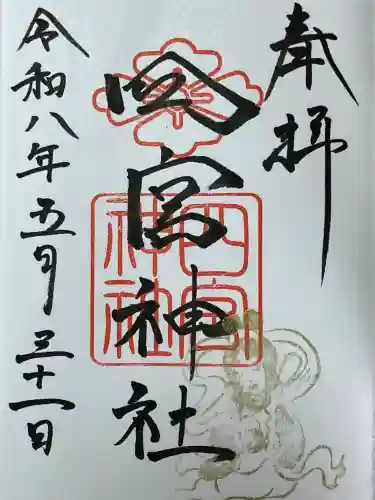 奉拝
四宮神社
四宮
神社
令和八年五月三十一日